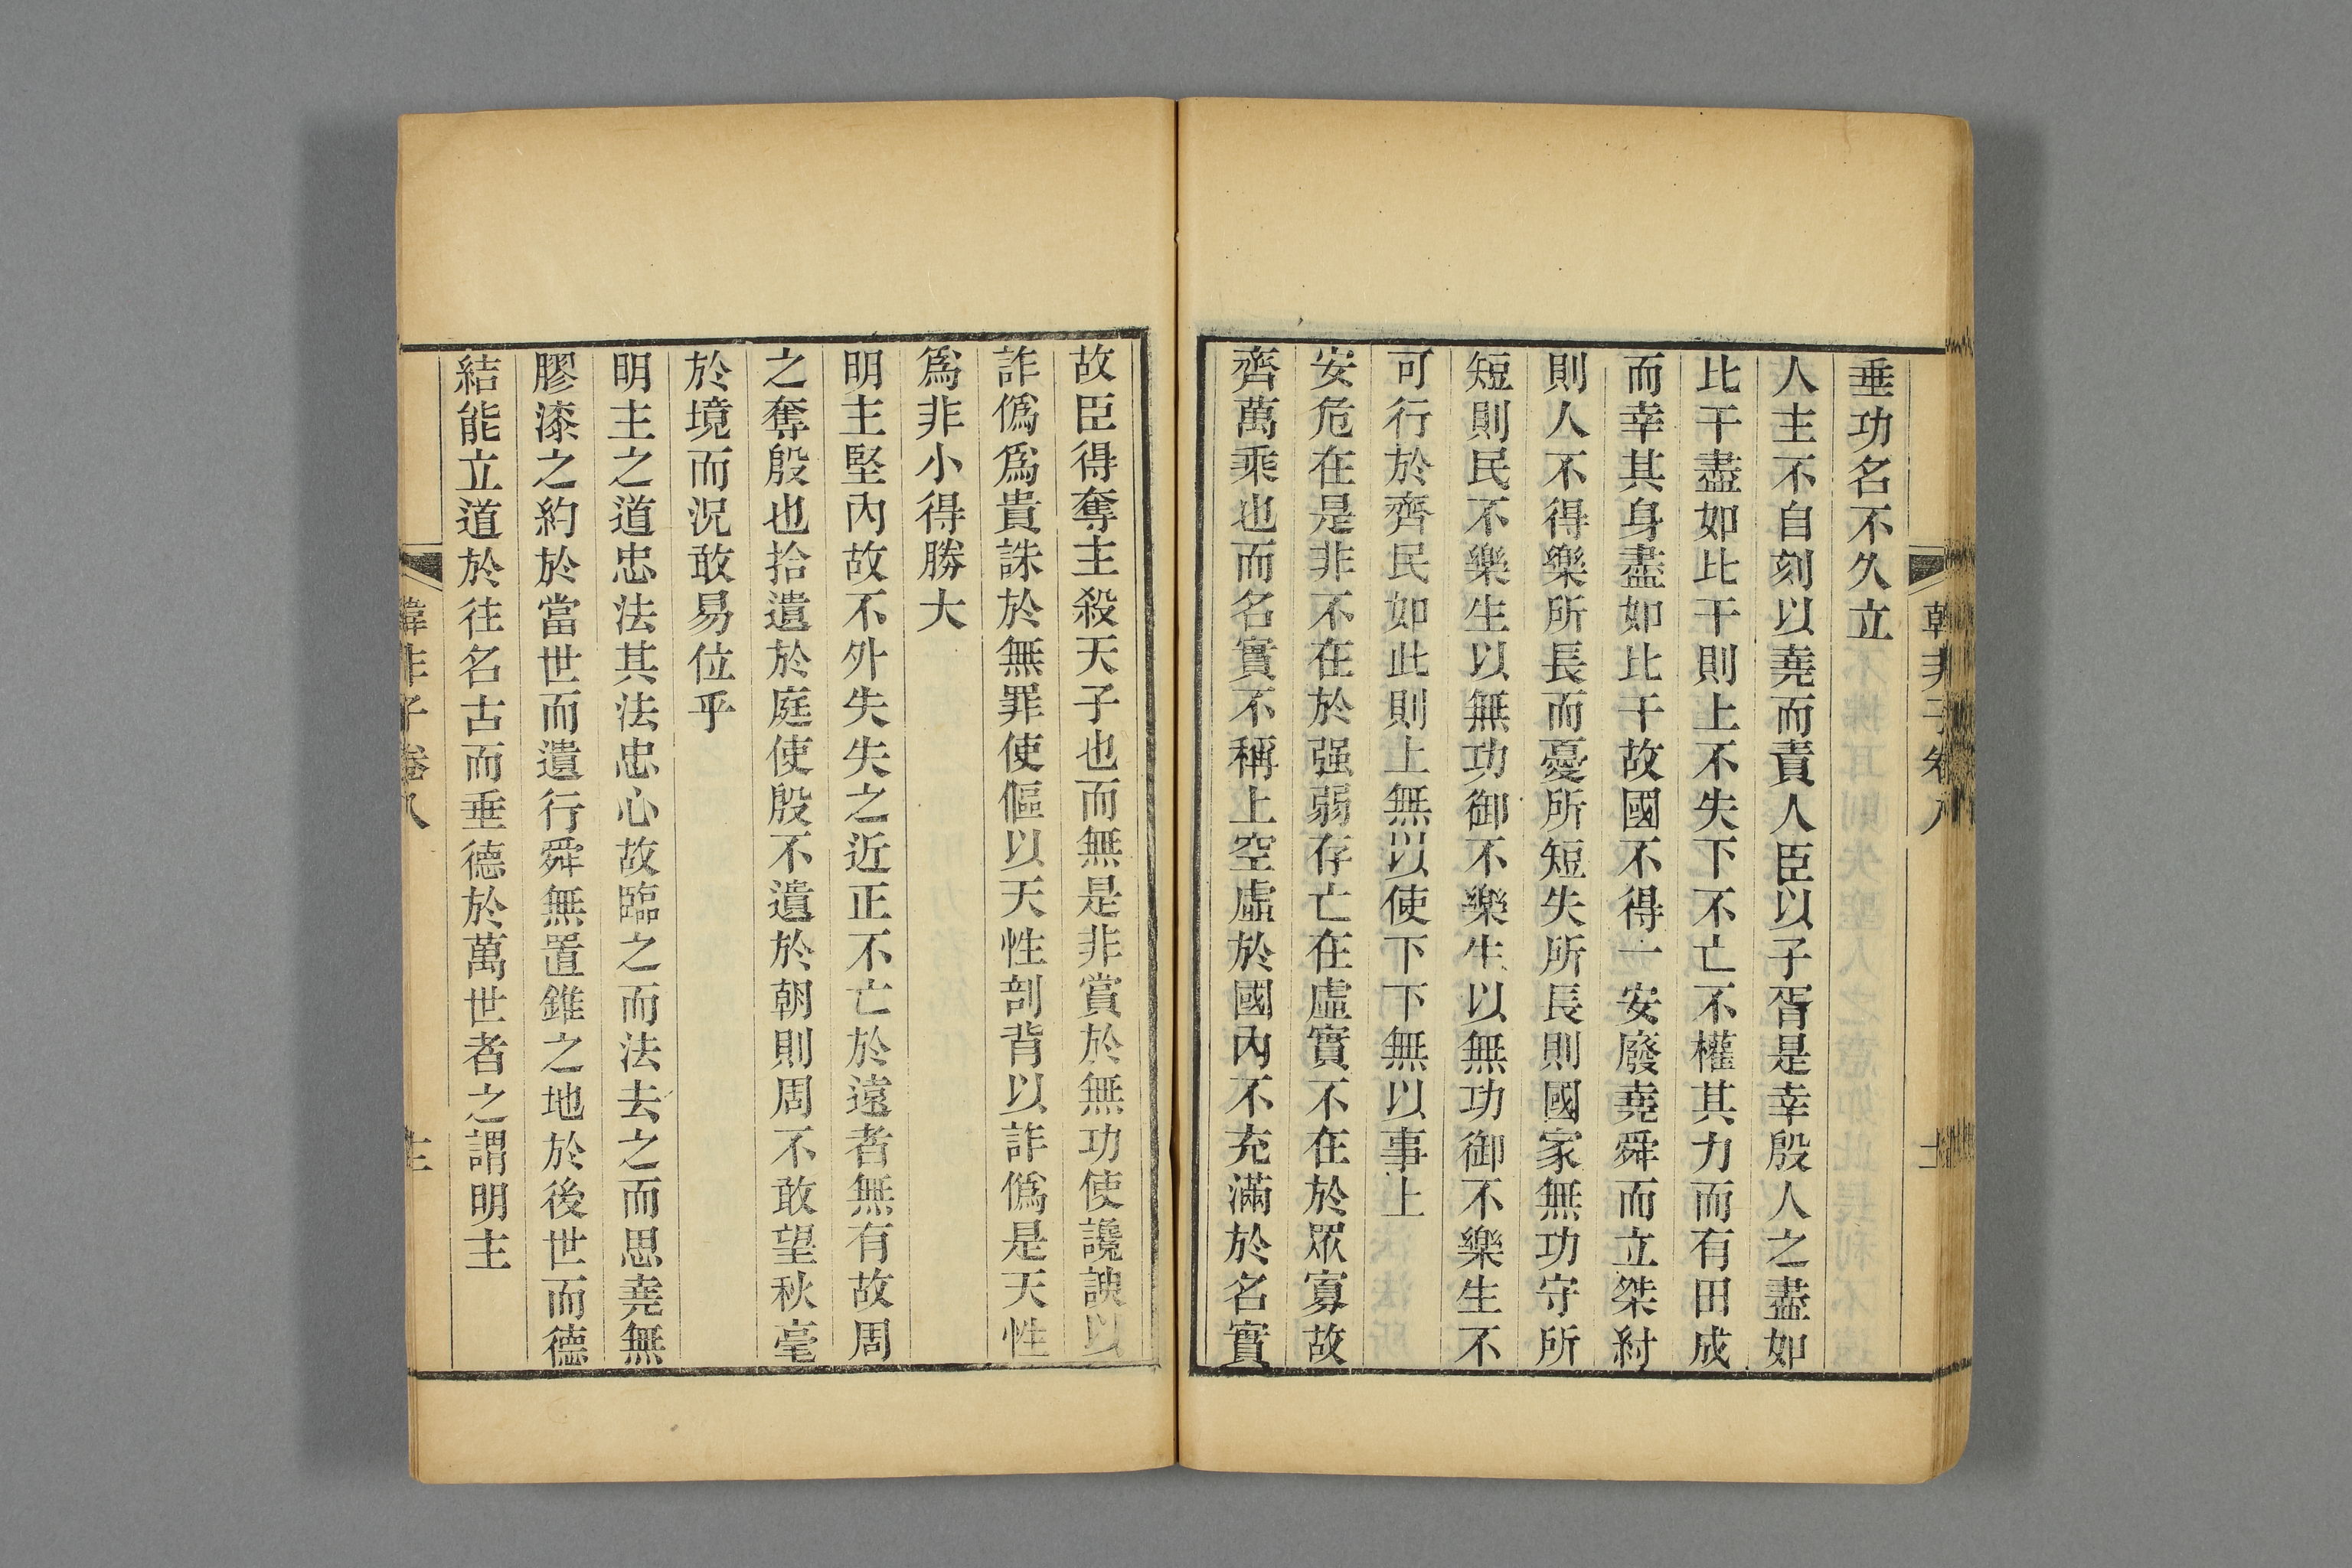 韓非子卷八
垂功名不久立
人主不自刻以堯而責人臣以子胥是幸殷人之盡如
比干盡如比干則上不失下不亡不權其力而有田成
而幸其身盡如比干故國不得一安廢堯舜而立桀紂
則人不得樂所長而憂所短失所長則國家無功守所
短則民不樂生以無功御不樂生以無功御不樂生不
可行於齊民如此則上無以使下下無以事上
安危在是非不在於强弱存亡在虛實不在於眾寡故
齊萬乘也而名實不稱上空虛於國內不充滿於名實
故臣得奪主殺天子也而無是非賞於無功使讒諛以
詐僞爲貴誅於無罪使傴以天性剖背以詐僞是天性
爲非小得勝大
明主堅內故不外失失之近正不亡於遠者無有故周
之奪殷也拾遺於庭使殷不遺於朝則周不敢望秋毫
於境而況敢易位乎
明主之道忠法其法忠心故臨之而法去之而思堯無
膠漆之約於當世而遺行舜無置錐之地於後世而德
結能立道於往名古而垂德於萬世者之謂明主
韓非子卷八